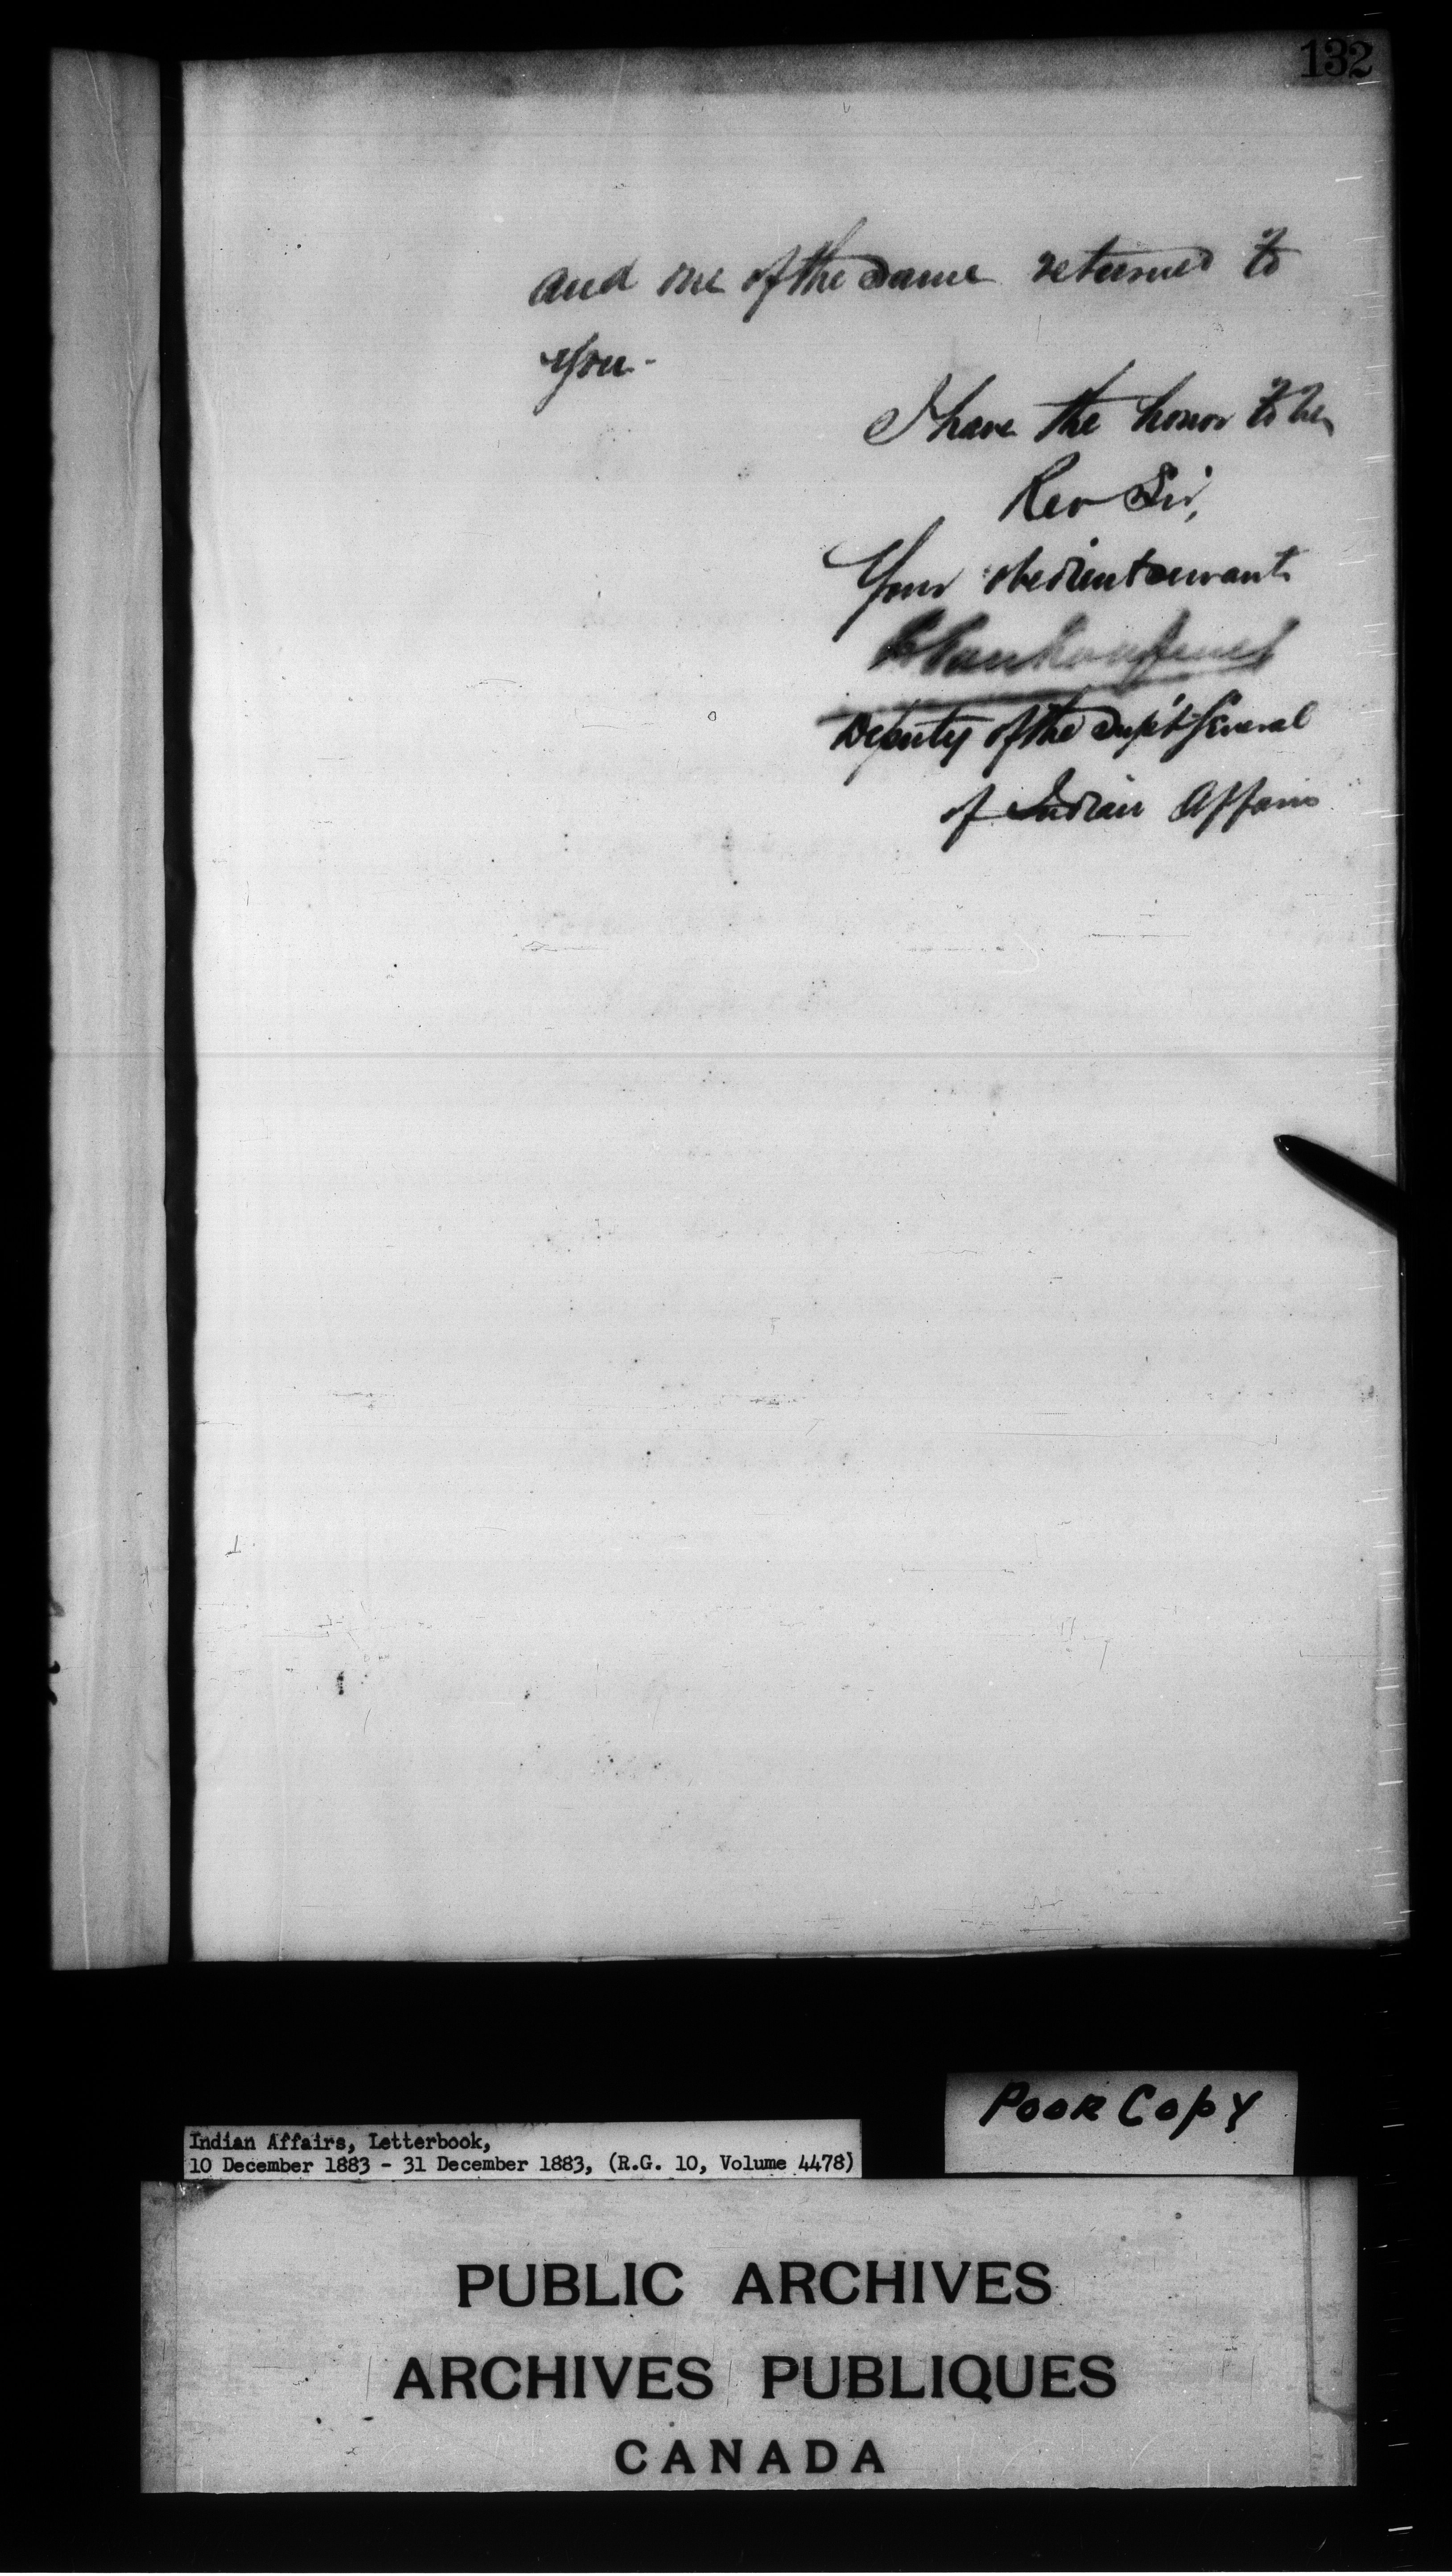 132
and one of the same returned to
you.
I have the honor to be,
Rev Sir,
Your obedient servant
L Vankoughnet
Deputy of the Supt General
of Indian Affairs
Poor Copy
Indian Affairs, Letterbook,
10 December 1883 - 31 December 1883, (R.G. 10, Volume 4478)
PUBLIC ARCHIVES
ARCHIVES PUBLIQUES
CANADA